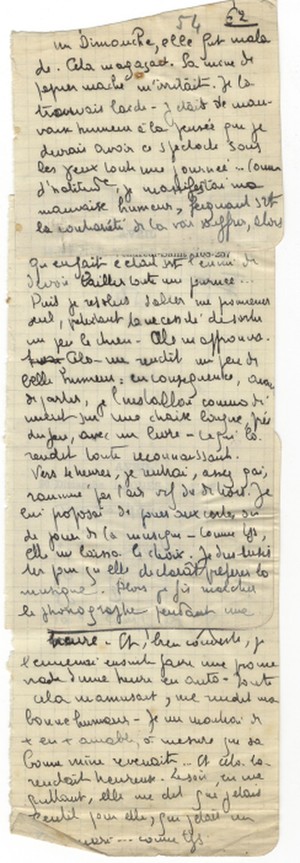 54 52
un Dimanche, elle fut mala
de. Cela m'agaçait. Sa mine de
papier maché m'irritait. Je la
trouvais laide - j'étais de mau-
vaise humeur à la pensée que je
devrais avoir ce spectacle sous
les yeux toute une journée... Comme
d'habitude, je manifestai ma
mauvaise humeur,
la contrariété de la voir souffrir, alors
qu'en fait c'était l'ennui de
devoir toute une journée...
Puis je résolus d'aller me promener
seul, prétextant la nécessité de sortir
un peu le chien - Elle m'approuva.
Cela me rendit un peu de
belle humeur : en conséquence, avant
de partir, je l'installai commodé
ment sur une chaise longue, près
du feu, avec un livre - ce qui la
rendit toute reconnaissante.
Vers 4 heures, je rentrai, assez gai,
ranimé par l'air vif du dehors. Je
lui proposai de jouer aux cartes, ou
de jouer de la musique - comme tjs,
elle me laissa le choix. Je
qu'elle déclarât préférer la
musique. Alors je fis marcher
le phonographe pendant une
heure. Et, bien couverte, je
l'emmenai ensuite faire une prome
nade d'une heure en auto - toute
cela m'amusait, me rendait ma
bonne humeur - Je me montrai de
+ en + aimable, à mesure que sa
bonne mine revenait... Et cela la
rendait heureuse. Le soir, en me
quittant, elle me dit que j'étais
gentil pour elle, que j'étais un
mari... comme tjs.